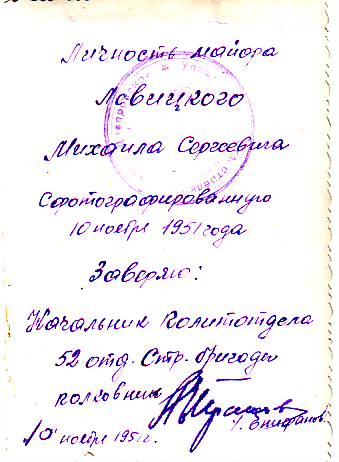 Личность майора
Ловицкого
Михаила Сергеевича
Сфотографированную
10 ноября 1951 года
Заверяю:
Начальник Политотдела
52 отд. Стр. бригады
полковник
/. Епифанов.
10 ноября 1951 г.